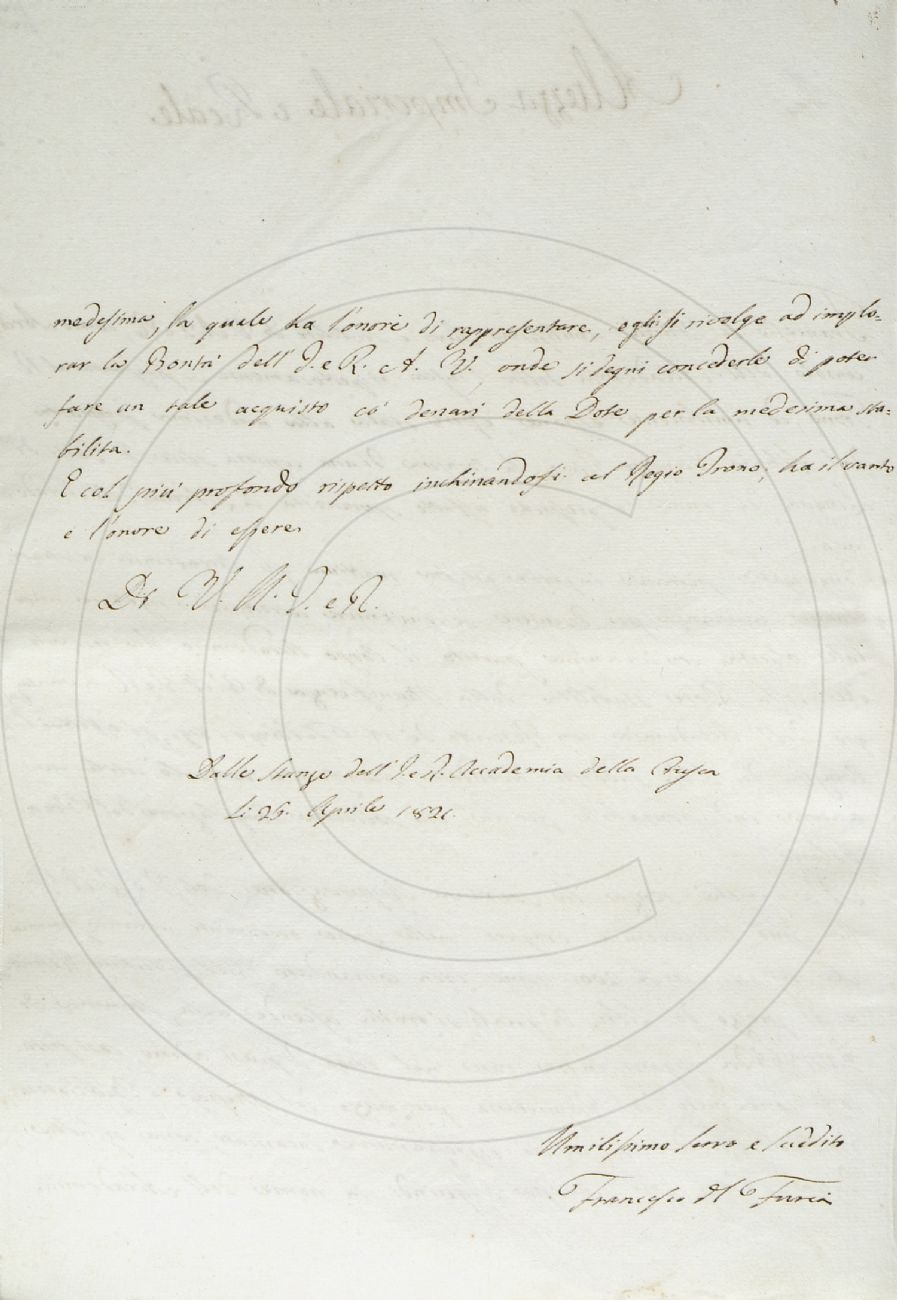 medesima, la quale ha l'onore di rappresentare, egli si rivolge ad implo=
rar la Bontà dell' I. e R. A. V. onde si degni concederle di poter
fare un tale acquisto co' denari della Dote per la medesima sta=
bilita.
E col più profondo rispetto inchinandosi al Regio Trono, ha il vanto
e l'onore di essere
Di V. A. I. e R.
Dalle Stanze dell' I. e R. Accademia della Crusca
Li 26. Aprile 1821.
Umilissimo servo e suddito
Francesco del Furia